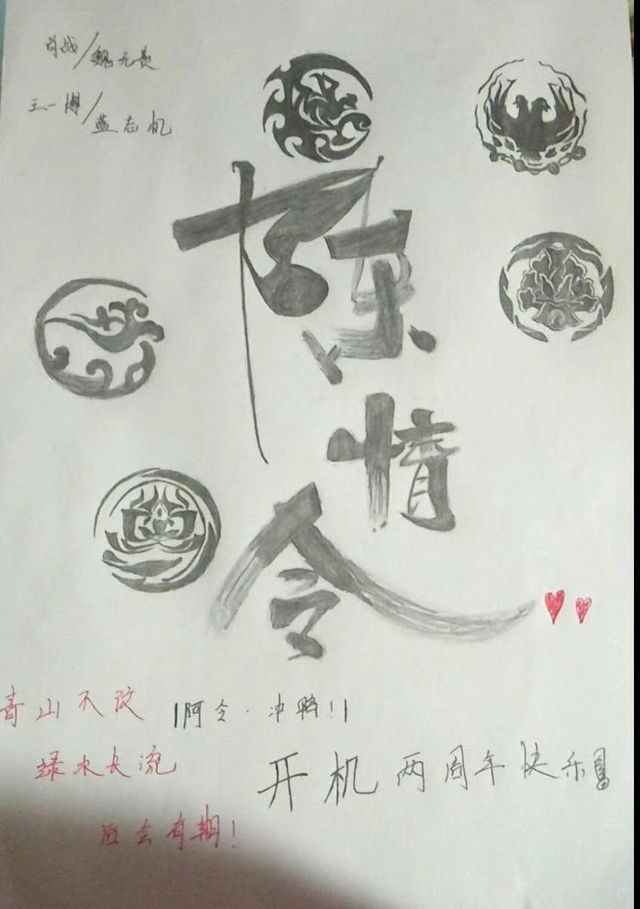 肖战/魏无羡
王一博/蓝忘机
陈
情
令
青山不改
绿水长流
后会有期!
阿令·冲鸭!
开机两周年快乐